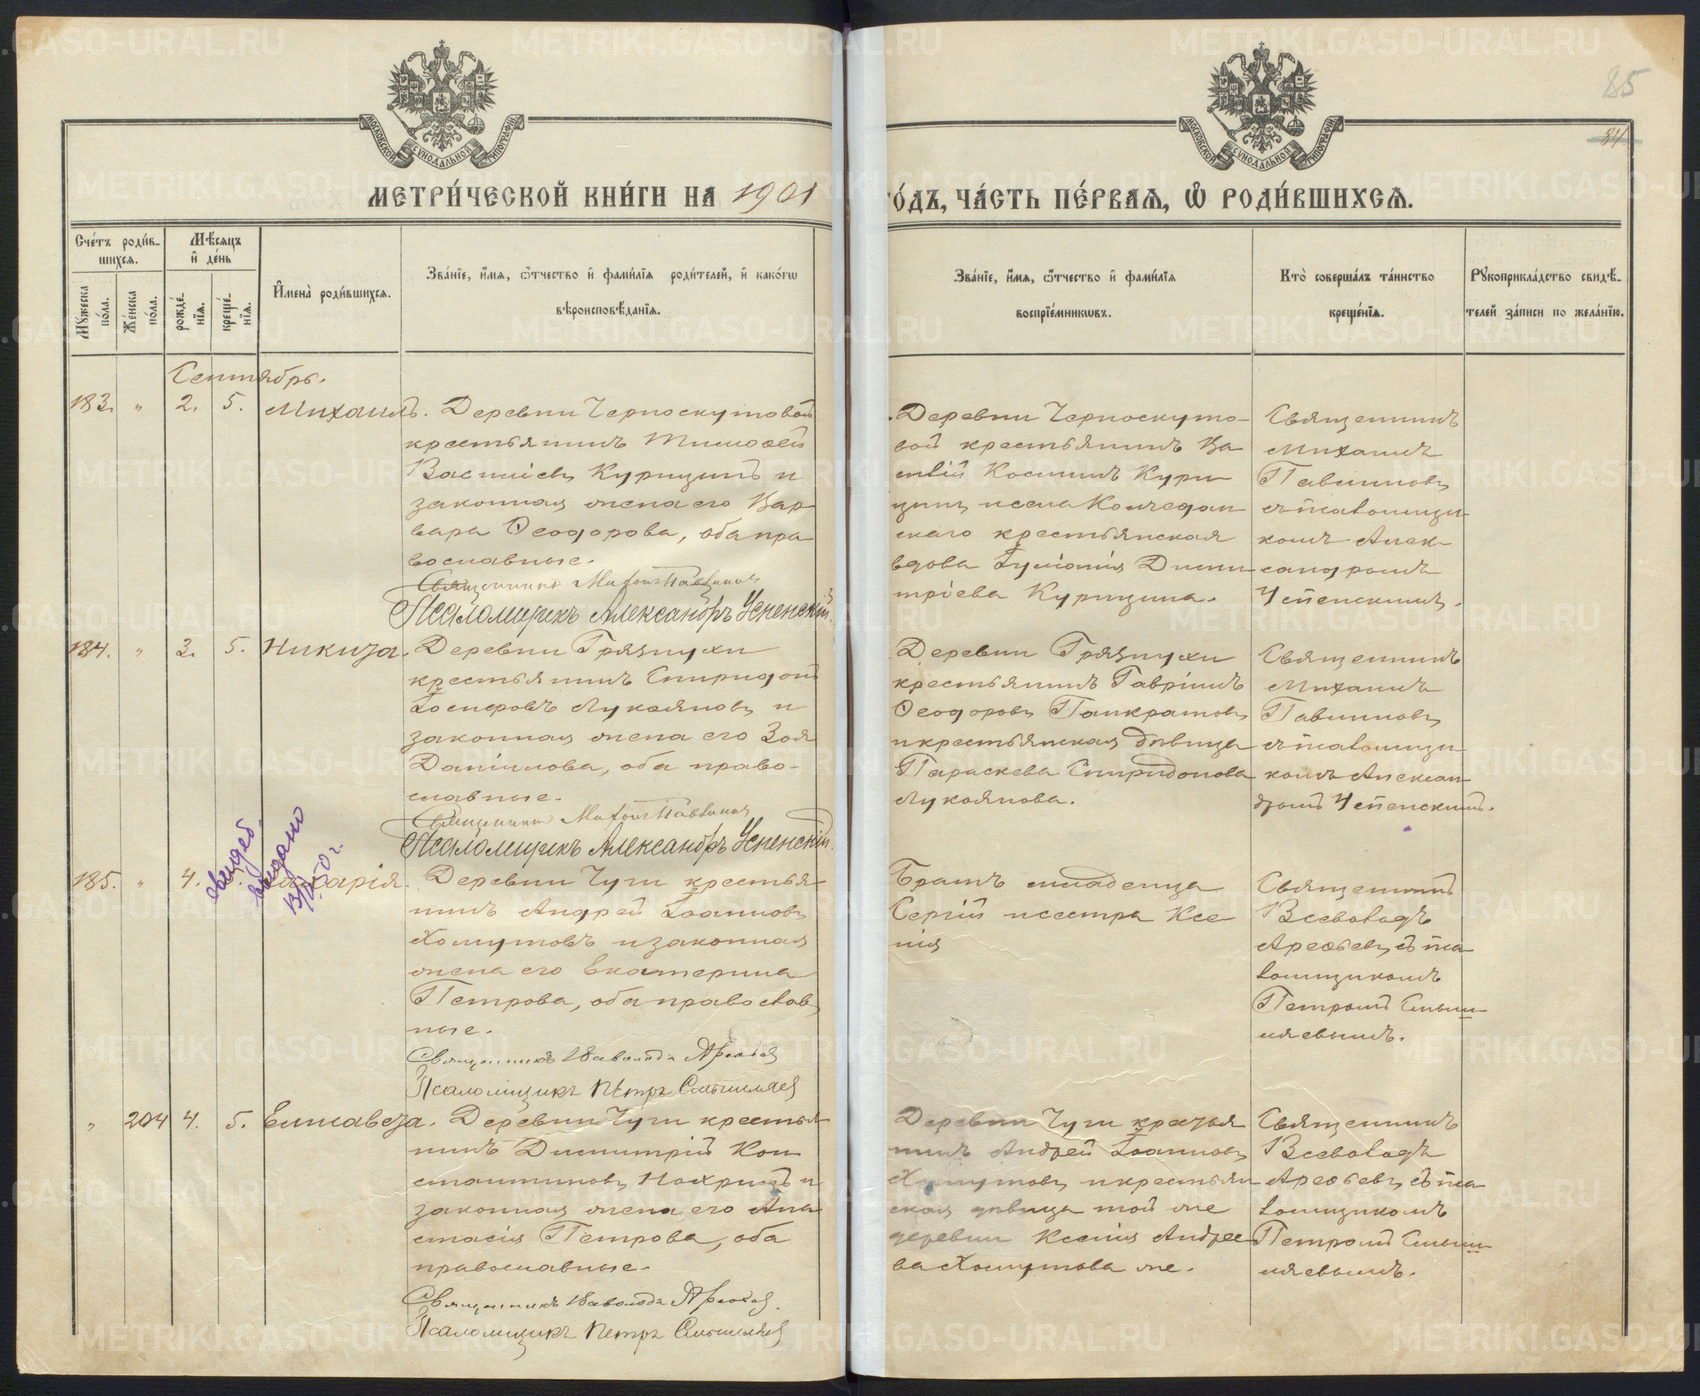 85
84
МЕТРИ́ЧЕСКОЙ КНИ́ГИ НА 1901
ГО́ДЪ, ЧА́СТЬ ПЕ́РВАѦ, Ѡ҆ РОДИ́ВШИХСѦ.
Сче́тъ роди́в-
шихсѧ.
Мꙋ́жеска по́ла.
Же́нска по́ла.
Мѣ́сѧцъ и҆ де́нь
рожде́-
нїѧ.
креще́-
нїѧ.
И҆мена̀ роди́вшихсѧ.
Зва́нїе, и҆́мѧ, ѻ҆́тчество и҆ фами́лїѧ роди́телей, и҆ како́гѡ
вѣроисповѣ́данїѧ.
Зва́нїе, и҆́мѧ, ѻ҆́тчество и҆ фами́лїѧ
воспрїе́мникѡвъ.
Кто̀ соверша́лъ та́инство
креще́нїѧ.
Рꙋкоприкла́дство свидѣ́-
телей за́писи по жела́нїю.
Сентябрь.
183. " 2. 5. Михаилъ.
Деревни Черноскутовой
крестьянинъ Тимофей
Васильевъ Курицинъ и
законная жена его Вар
вара Ѳеодорова, оба пра
вославные.
Священникъ Михаилъ
Псаломщикъ Александръ Успенскій.
Деревни Черноскуто-
вой крестьянинъ Ва
силій Косминъ Кури
цинъ и села Колчедан
скаго крестьянская
вдова Іуліанія Дими
тріева Курицина.
Священникъ
Михаилъ
съ псаломщи
комъ Алек-
сандромъ
Успенскимъ.
184. " 3. 5. Никита.
Деревни Грязнухи
крестьянинъ Спиридонъ
Лукояновъ и
законная жена его Зоя
Даніилова, оба право-
славные.
Священникъ Михаилъ
Псаломщикъ Александръ Успенскій.
Деревни Грязнухи
крестьянинъ Гавріилъ
Ѳеодоровъ Панкратовъ
и крестьянская дѣвица
Параскева Спиридонова
Лукоянова.
Священникъ
Михаилъ
съ псаломщи
комъ Алексан
дромъ Успенскимъ.
свидет.
выдано
185. " 4.
Деревни Чуги крестья
нинъ Андрей Іоанновъ
Хомутовъ и законная
жена его Екатерина
Петрова, оба православ
ные.
Священникъ Всеволодъ Арефьевъ
Псаломщикъ Петръ Смышляевъ
Братъ младенца
Сергій и сестра Ксе
нія
Священникъ
Всеволодъ
Арефьевъ съ пса
ломщикомъ
Петромъ Смыш
ляевымъ.
" 204 4. 5. Елисавета.
Деревни Чуги крестья
нинъ Димитрій Кон
стантиновъ Нохринъ и
законная жена его Ана
стасія Петрова, оба
православные.
Священникъ Всеволодъ Арефьевъ.
Псаломщикъ Петръ Смышляевъ
Деревни Чуги крестья
нинъ Андрей Іоанновъ
Хомутовъ и крестьян
ская дѣвица той же
деревни Ксенія Андрее
ва Хомутова же.
Священникъ
Всеволодъ
Арефьевъ съ пса
ломщикомъ
Петромъ Смыш
ляевымъ.
METRIKI.GASO-URAL.RU